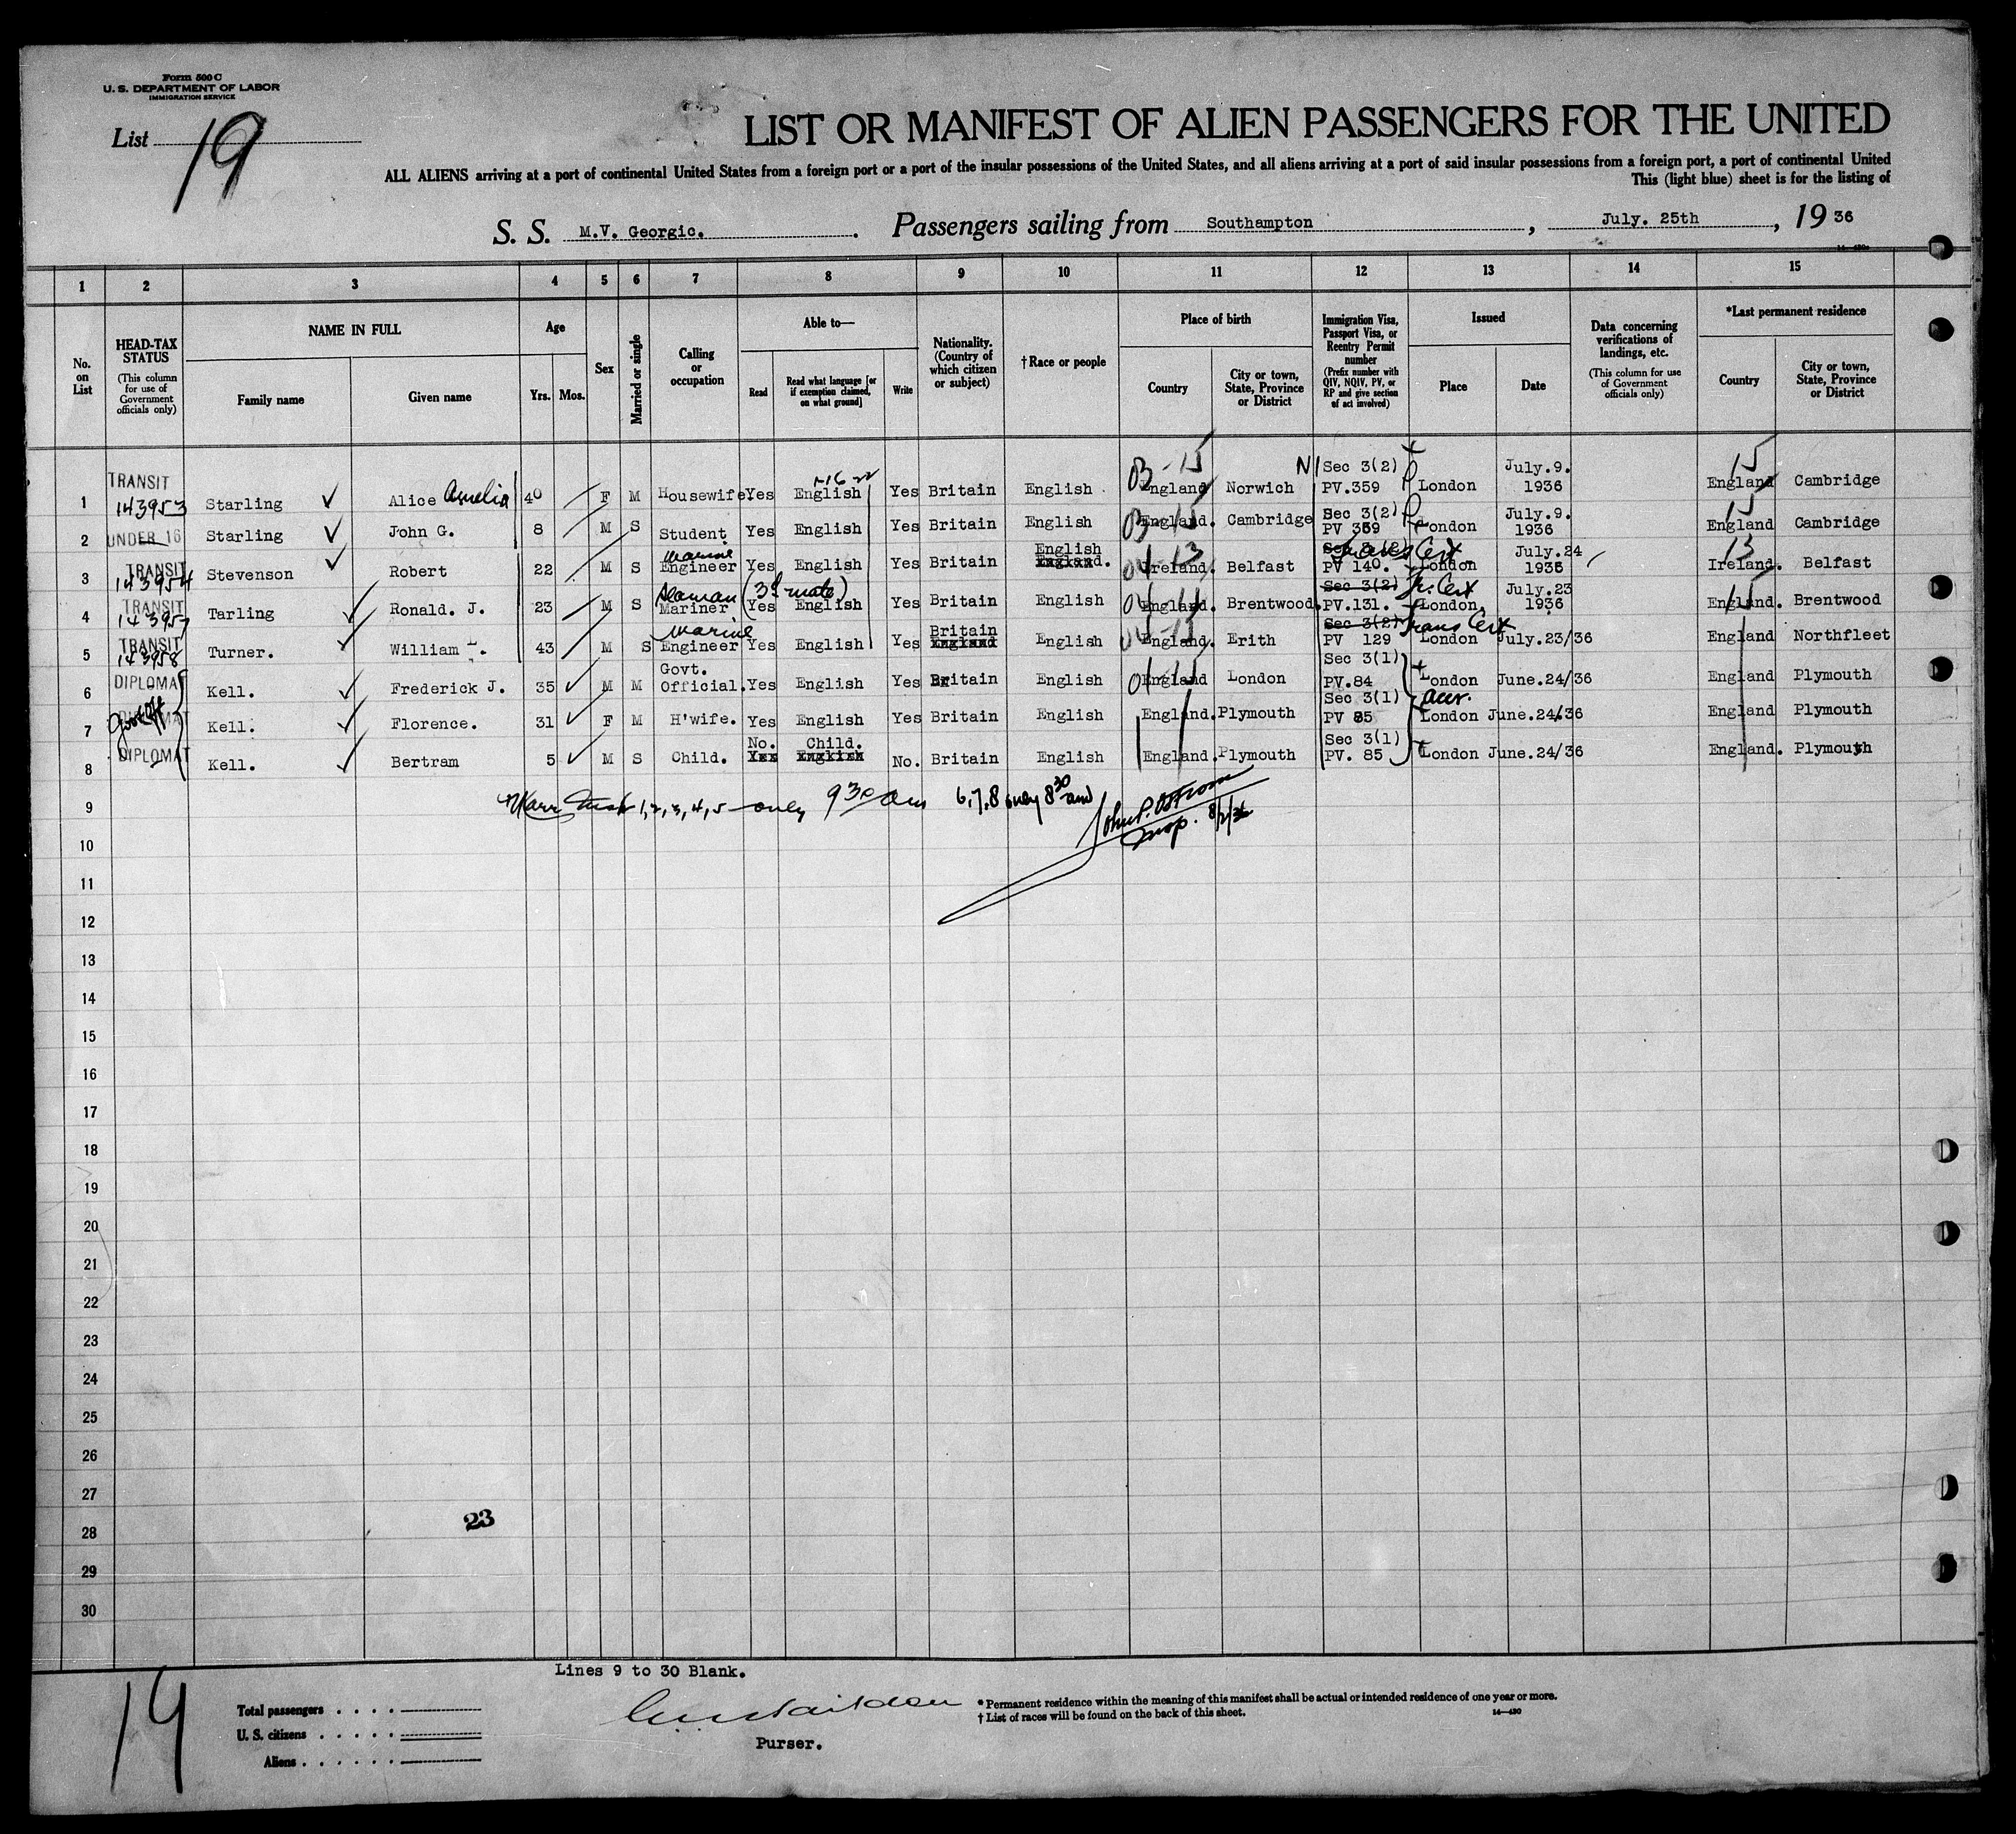 Form 500 C
U. S. DEPARTMENT OF LABOR
IMMIGRATION SERVICE
List 19
LIST OR MANIFEST OF ALIEN PASSENGERS FOR THE UNITED
ALL ALIENS arriving at a port of continental United States from a foreign port or a port of the insular possessions of the United States, and all aliens arriving at a port of said insular possessions from a foreign port, a port of continental United
This (light blue) sheet is for the listing of
S. S. M.V. Georgic. Passengers sailing from Southampton, July. 25th, 19 36
1 2 3 4 5 6 7 8 9 10 11 12 13 14 15
No. on List
HEAD-TAX STATUS (This column for use of Government officials only)
NAME IN FULL
Family name
Given name
Age
Yrs. Mos.
Sex
Married or single
Calling or occupation
Able to—
Read
Read what language [or if exemption claimed, on what ground]
Write
Nationality. (Country of which citizen or subject)
†Race or people
Place of birth
Country
City or town, State, Province or District
Immigration Visa, Passport Visa, or Reentry Permit number (Prefix number with QIV, NQIV, PV, or RP and give section of act involved)
Issued
Place
Date
Data concerning verifications of landings, etc. (This column for use of Government officials only)
*Last permanent residence
Country
City or town, State, Province or District
1 TRANSIT 143953 Starling Alice Amelia 40 F M Housewife Yes English Yes Britain English England Norwich Sec 3(2) PV.359 London July.9. 1936 England Cambridge
2 UNDER 16 Starling John G. 8 M S Student Yes English Yes Britain English England. Cambridge Sec 3(2) PV 359 London July.9. 1936 England Cambridge
3 TRANSIT 143954 Stevenson Robert 22 M S Marine Engineer Yes English Yes Britain English England. Ireland. Belfast Sec 3(2) Trans Cert PV 140. London July.24 1936 Ireland. Belfast
4 TRANSIT 143957 Tarling Ronald. J. 23 M S Seaman (3d mate) Mariner Yes English Yes Britain English England. Brentwood. Sec 3(2) Tr. Cert PV.131. London, July.23 1936 England. Brentwood
5 TRANSIT 143958 Turner. William 43 M S Marine Engineer Yes English Yes Britain England English England. Erith Sec 3(2) Trans Cert PV 129 London July.23/36 England Northfleet
6 DIPLOMAT Kell. Frederick J. 35 M M Govt. Official. Yes English Yes Britain English England London Sec 3(1) PV.84 London June.24/36 England Plymouth
7 DIPLOMAT Kell. Florence. 31 F M H'wife. Yes English Yes Britain English England. Plymouth Sec 3(1) PV 85 London June.24/36 England Plymouth
8 DIPLOMAT Kell. Bertram 5 M S Child. No. Yes Child. English No. Britain English England. Plymouth Sec 3(1) PV. 85 London June.24/36 England. Plymouth
9 1, 2, 3, 4, 5 only 9 30 am 6, 7, 8 only 8 30 am
John P. Ostrom
Insp. 8/2/36
10
11
12
13
14
15
16
17
18
19
20
21
22
23
24
25
26
27
28
29
30
23
Lines 9 to 30 Blank.
Total passengers
U. S. citizens
Aliens
Purser.
* Permanent residence within the meaning of this manifest shall be actual or intended residence of one year or more.
† List of races will be found on the back of this sheet.
14—430